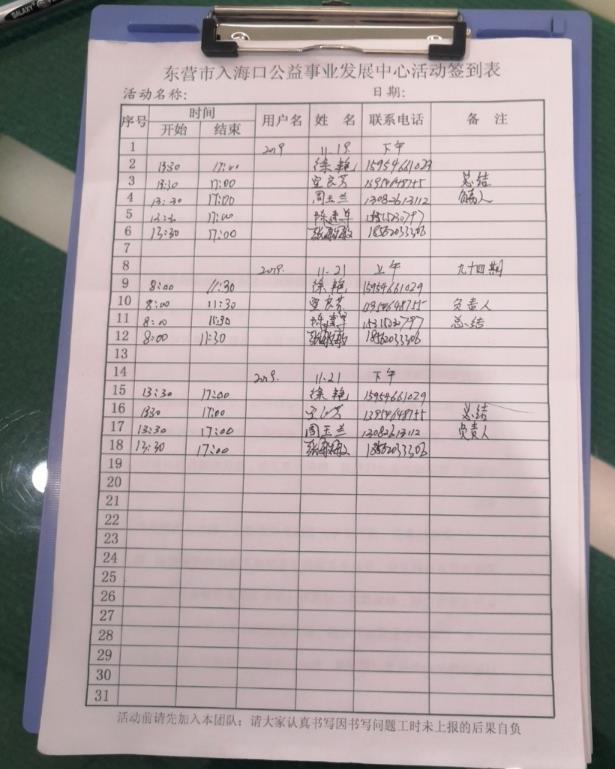 GALAXY
东营市入海口公益事业发展中心活动签到表
活动名称: 日期:
序号 时间 用户名 姓 名 联系电话 备 注
开始 结束
1 2019 11.19 下午
2 13:30 17:00 徐艳 15954661029
3 13:30 17:00 总结
4 13:30 17:00 周玉兰
5 17:00
6 13:30 17:00 18562033306
7
8 2019. 11.21 上午 九十四期
9 8:00 11:30 徐艳 15954661029
10 8:00 11:30 负责人
11 8:00 11:30 总结
12 8:00 11:30 18562033306
13
14 2019. 11.21 下午
15 13:30 17:00 徐艳 15954661029
16 1330 17:00 总结
17 13:30 17:00 周玉兰 负责人
18 13:30 17:00 18562033306
19
20
21
22
23
24
25
26
27
28
29
30
31
活动前请先加入本团队；请大家认真书写因书写问题工时未上报的后果自负